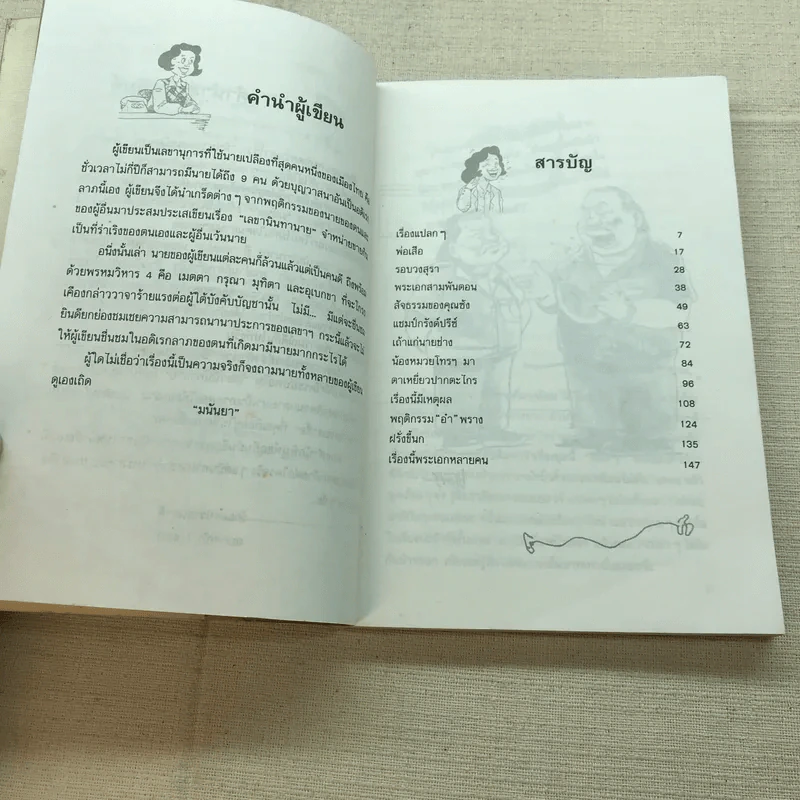 คำนำผู้เขียน
ผู้เขียนเป็นเลขานุการที่ใช้นายเปลืองที่สุดคนหนึ่งของเมืองไทย คือ
ชั่วเวลาไม่กี่ปีก็สามารถมีนายได้ถึง 9 คน ด้วยบุญวาสนาอันเป็น
ลาภนี้เอง ผู้เขียนจึงได้นำเกร็ดต่างๆ จากพฤติกรรมของนายของตนและ
ของผู้อื่นมาประสมประเสเขียนเรื่อง "เลขานินทานาย" จำหน่ายขายกิน
เป็นที่ร่าเริงของตนเองและผู้อื่นเว้นนาย
อนึ่งนั้นเล่า นายของผู้เขียนแต่ละคนก็ล้วนแล้วแต่เป็นคนดี ถึงพร้อม
ด้วยพรหมวิหาร 4 คือ เมตตา กรุณา มุทิตา และอุเบกขา ที่จะโกรธ
เคืองกล่าววาจาร้ายแรงต่อผู้ใต้บังคับบัญชานั้น ไม่มี... มีแต่จะชื่นชม
ยินดียกย่องชมเชยความสามารถนานาประการของเลขาฯ กระนี้แล้วจะไม่
ให้ผู้เขียนชื่นชมในอดิเรกลาภของตนที่เกิดมามีนายมากกระไรได้
ผู้ใดไม่เชื่อว่าเรื่องนี้เป็นความจริงก็จงถามนายทั้งหลายของผู้เขียน
ดูเองเถิด
"มนันยา"
สารบัญ
เรื่องแปลกๆ 7
พ่อเสือ 17
รอบวงสุรา 28
พระเอกสามพันตอน 38
สัจธรรมของคุณซัง 49
แชมป์กรังด์ปรีซ์ 63
เถ้าแก่นายช่าง 72
น้องหมวยโทรฯ มา 84
ตาเหยี่ยวปากตะไกร 96
เรื่องนี้มีเหตุผล 108
พฤติกรรม "อำ" พราง 124
ฝรั่งขี้นก 135
เรื่องนี้พระเอกหลายคน 147